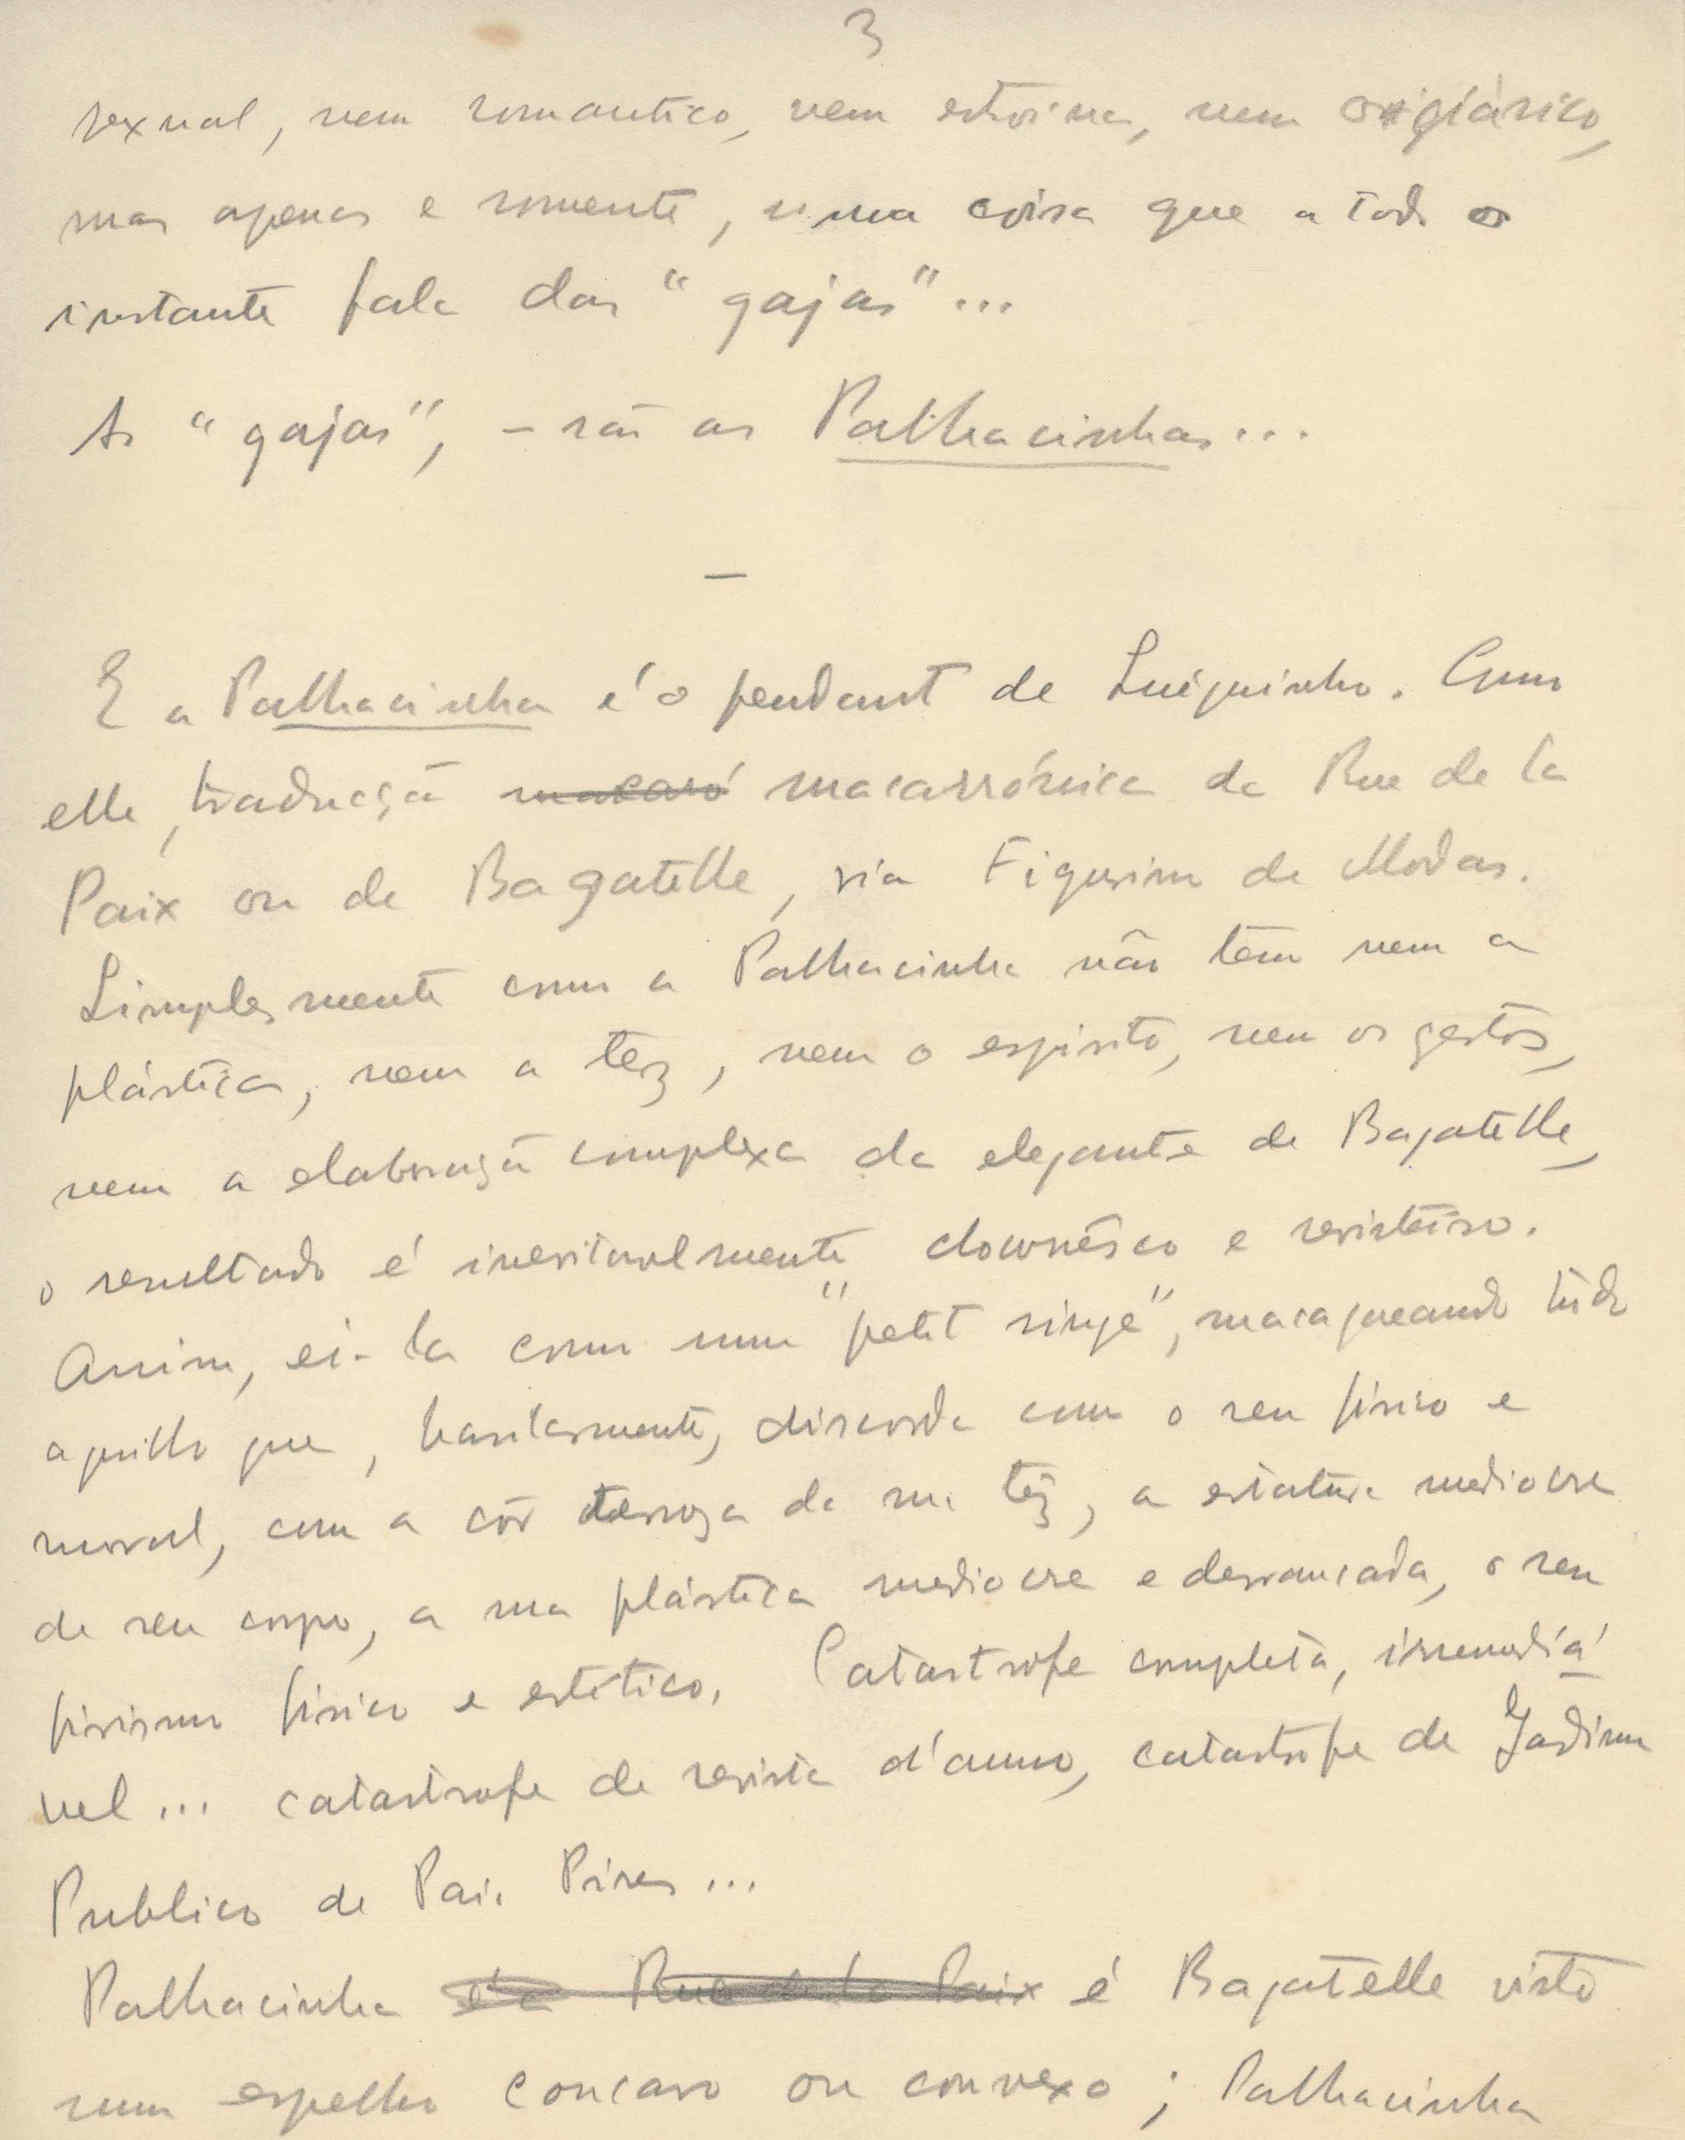 3
sexual, nem romantico, nem estroina, nem orgiárico,
mas apenas e somente, uma coisa que a todo o
instante fala das "gajas"...
As "gajas", – são as Palhacinhas...
–
E a Palhacinha é o pendant de Luiguinho. Como
elle, traducção macaró macarrónica da Rue de la
Paix ou de Bagatelle, via Figurino de Modas.
Simplesmente como a Palhacinha não têm nem a
plástica, nem a tez, nem o espirito, nem os gestos,
nem a elaboração complexa da elegante de Bagatelle,
o resultado é inevitavelmente clownêsco e revisteiro.
Assim, ei-la como um "petit singe", macaqueando tudo
aquillo que, basilarmente, discorda com o seu fisico e
moral, com a côr terrosa da sua têz, a estatura mediocre
de seu corpo, a sua plástica mediocre e desmanicada, o seu
fisico e estetico. Catastrofe completa, irremediá-
vel... catastrofe de revista d'anno, catastrofe de Jardim
Publico de Paio Pires...
Palhacinha é a Rue de la Paix é Bagatelle visto
num espelho concavo ou convexo; Palhacinha